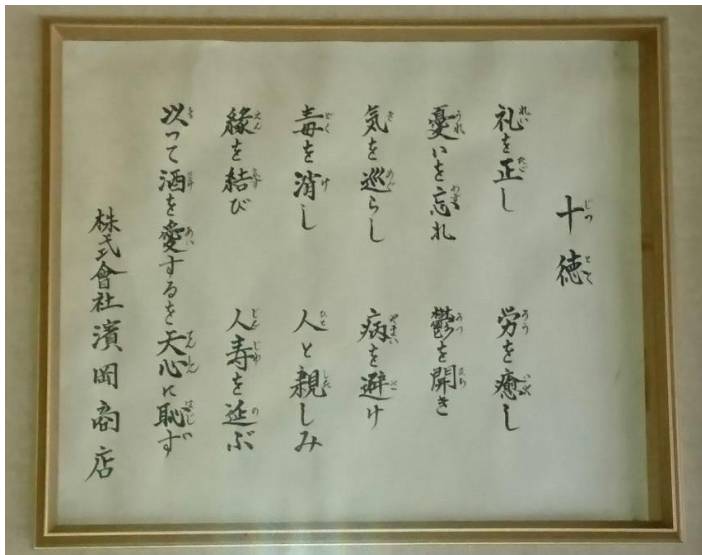 十徳
礼を正し　労を癒し
憂いを忘れ　鬱を開き
気を巡らし　病を避け
毒を消し　人と親しみ
縁を結び　人寿を延ぶ
以って酒を愛するを天心に恥ず
株式會社 濱岡商店